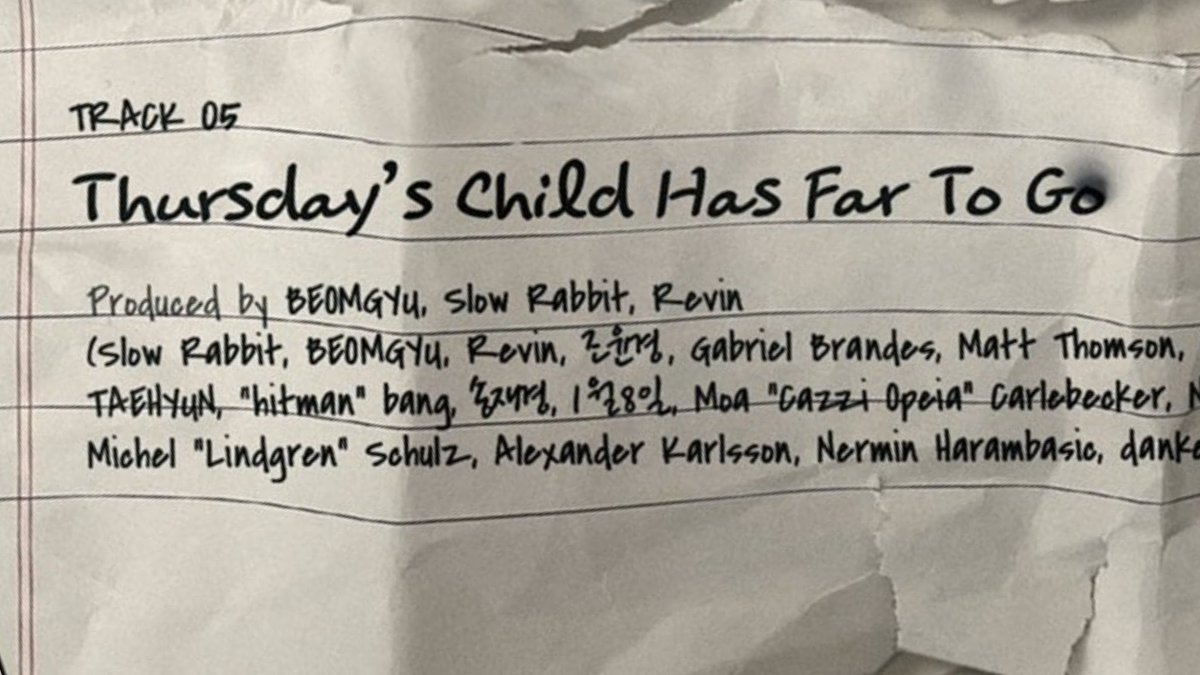 TRACK 05
Thursday's Child Has Far To Go
Produced by BEOMGYU, Slow Rabbit, Revin
(Slow Rabbit, BEOMGYU, Revin, 조윤경, Gabriel Brandes, Matt Thomson,
TAEHYUN, "hitman" bang, 송재경, 1월8일, Moa "Cazzi Opeia" Carlebecker,
Michel "Lindgren" Schulz, Alexander Karlsson, Nermin Harambasic,